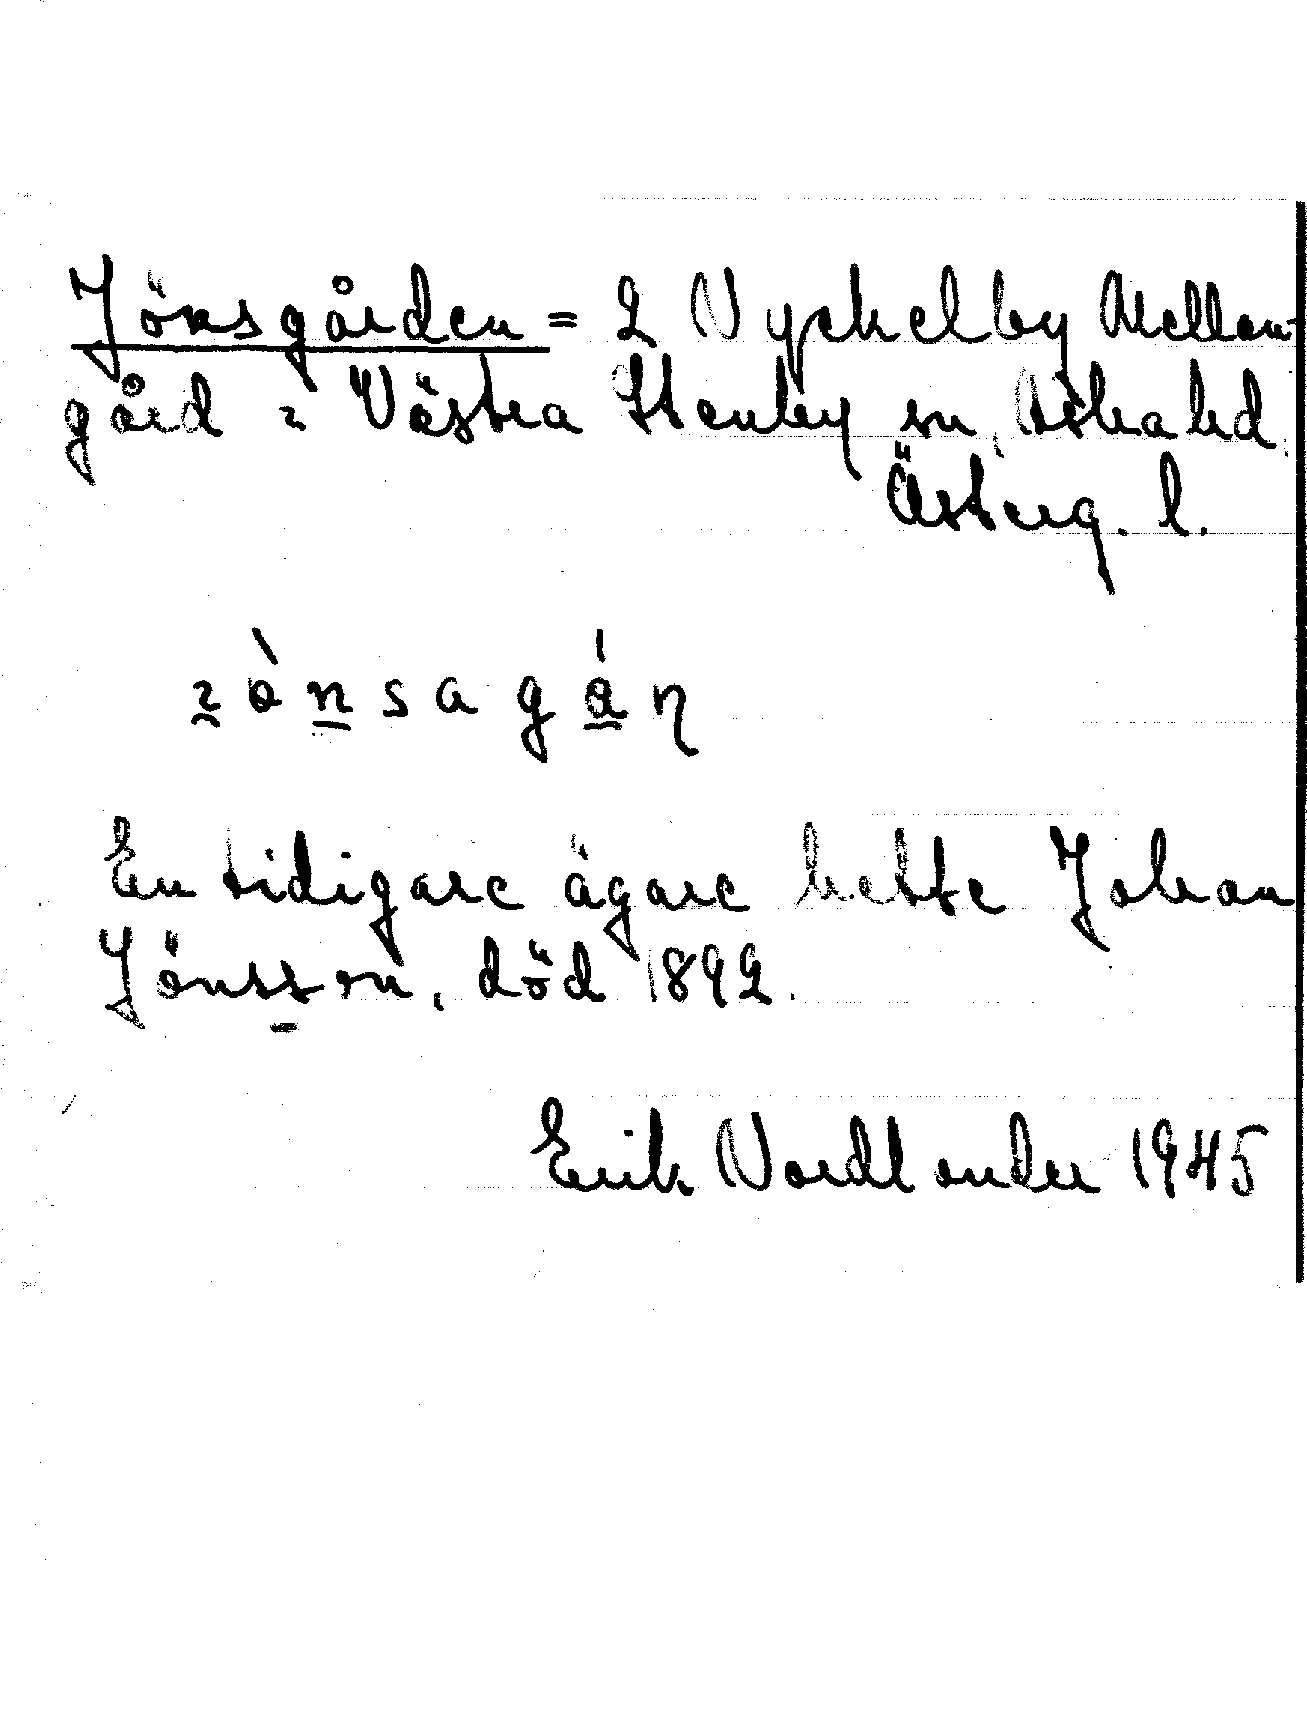 Jönsgården = 2 Nyckelby Mellan-
gård i Västra Stenby sn, Aska hd.
Österg. l.
En tidigare ägare hette Johan
Jönsson, död 1892.
Erik Nordlander 1945